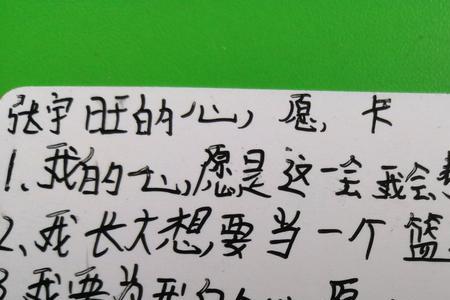 张宇旺的心愿卡
1、我的心愿是这一会我会
2、我长大想要当一个篮
3.我要为我的心愿